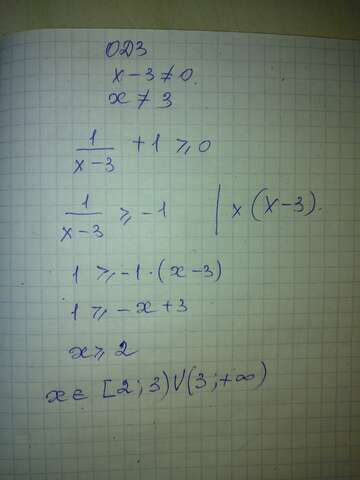 ОДЗ
x-3≠0.
x≠3
1/(x-3) +1 ⩾0
1/(x-3) ⩾ -1 | x (x-3).
1 ⩾ -1·(x-3)
1 ⩾ -x+3
x⩾2
x∈ [2;3)V(3;+∞)